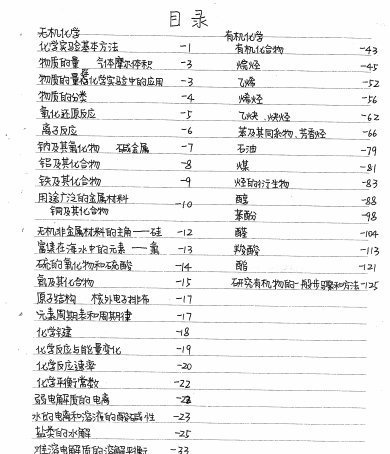 目录
无机化学
化学实验基本方法 -1
物质的量 气体摩尔体积 -3
物质的量在化学实验中的应用 -3
物质的分类 -4
氧化还原反应 -5
离子反应 -6
钠及其化合物 碱金属 -7
铝及其化合物 -8
铁及其化合物 -9
用途广泛的金属材料
铜及其化合物 -10
无机非金属材料的主角——硅 -12
富集在海水中的元素——氯 -13
硫的氧化物和硫酸 -14
氮及其化合物 -15
原子结构 核外电子排布 -17
元素周期表和周期律 -17
化学键 -18
化学反应与能量变化 -19
化学反应速率 -20
化学平衡常数 -22
弱电解质的电离 -22
水的电离和溶液的酸碱性 -23
盐类的水解 -25
难溶电解质的溶解平衡 -33
有机化学
有机化合物 -43
烷烃 -45
乙烯 -52
烯烃 -56
乙炔、炔烃 -62
苯及其同系物、芳香烃 -66
石油 -79
煤 -81
烃的衍生物 -83
醇 -88
苯酚 -98
醛 -104
羧酸 -113
酯 -121
研究有机物的一般步骤和方法 -125